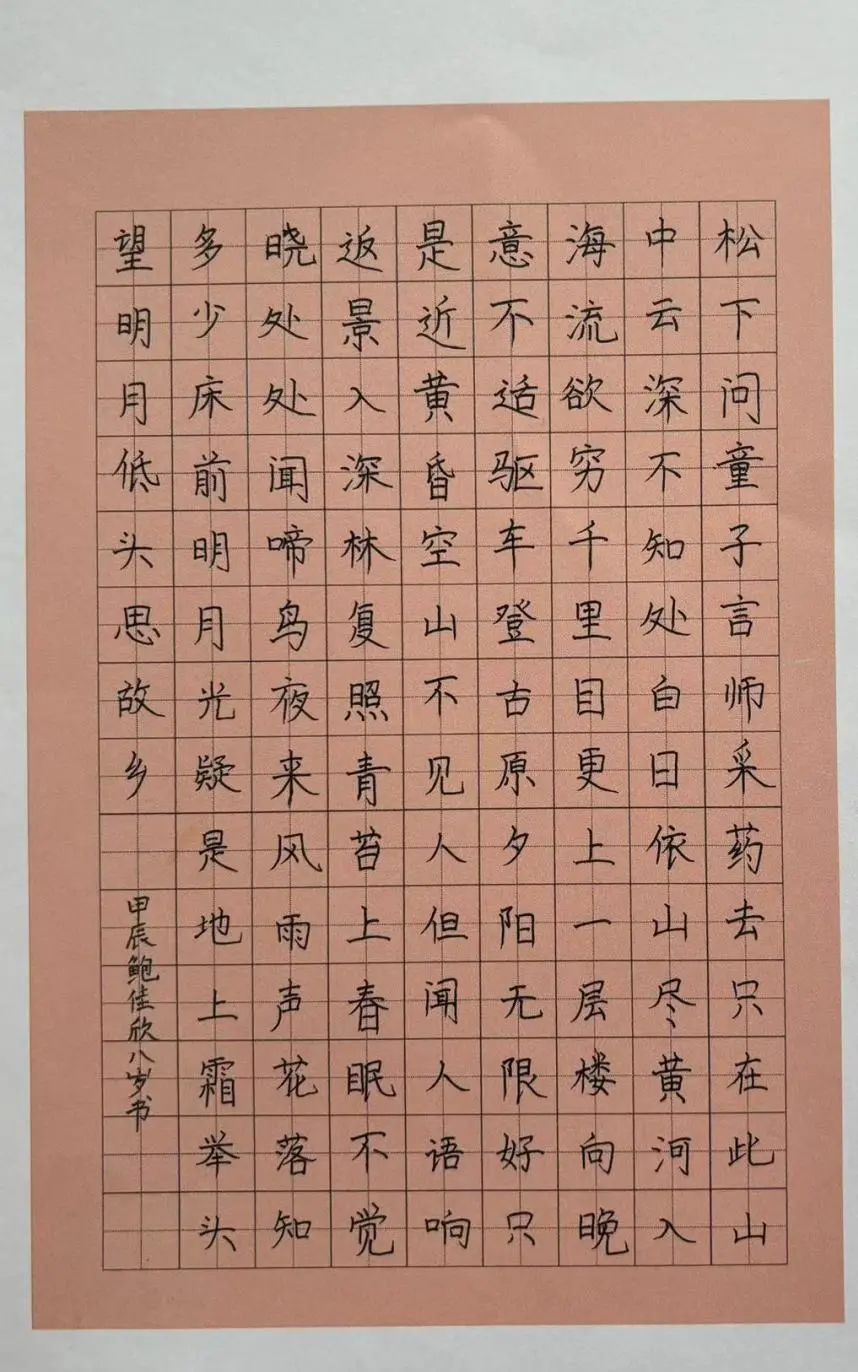 松下问童子言师采药去只在此山
中云深不知处白日依山尽黄河入
海流欲穷千里目更上一层楼向晚
意不适驱车登古原夕阳无限好只
是近黄昏空山不见人但闻人语响
返景入深林复照青苔上春眠不觉
晓处处闻啼鸟夜来风雨声花落知
多少床前明月光疑是地上霜举头
望明月低头思故乡
甲辰鲍佳欣八岁书